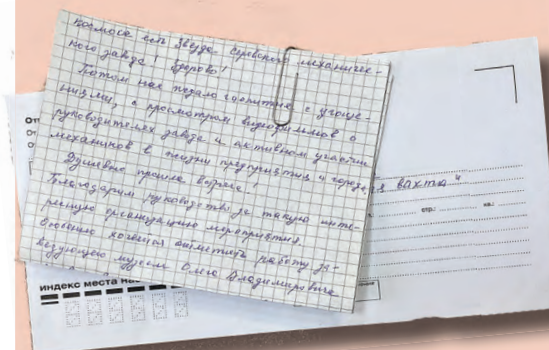 космоса есть звезда Серовского механичес-
кого завода! Здорово!
Потом нас ждало чаепитие с угоще-
ниями, с просмотром видеофильмов о
руководителях завода и активном участии
механиков в жизни предприятия и города.
Душевно прошла встреча!
Благодарим руководство за такую инте-
ресную организацию мероприятия.
Особенно хочется отметить работу за-
ведующего музеем Олега Владимировича
я вахта"
От
стр.
кв.
индекс места на